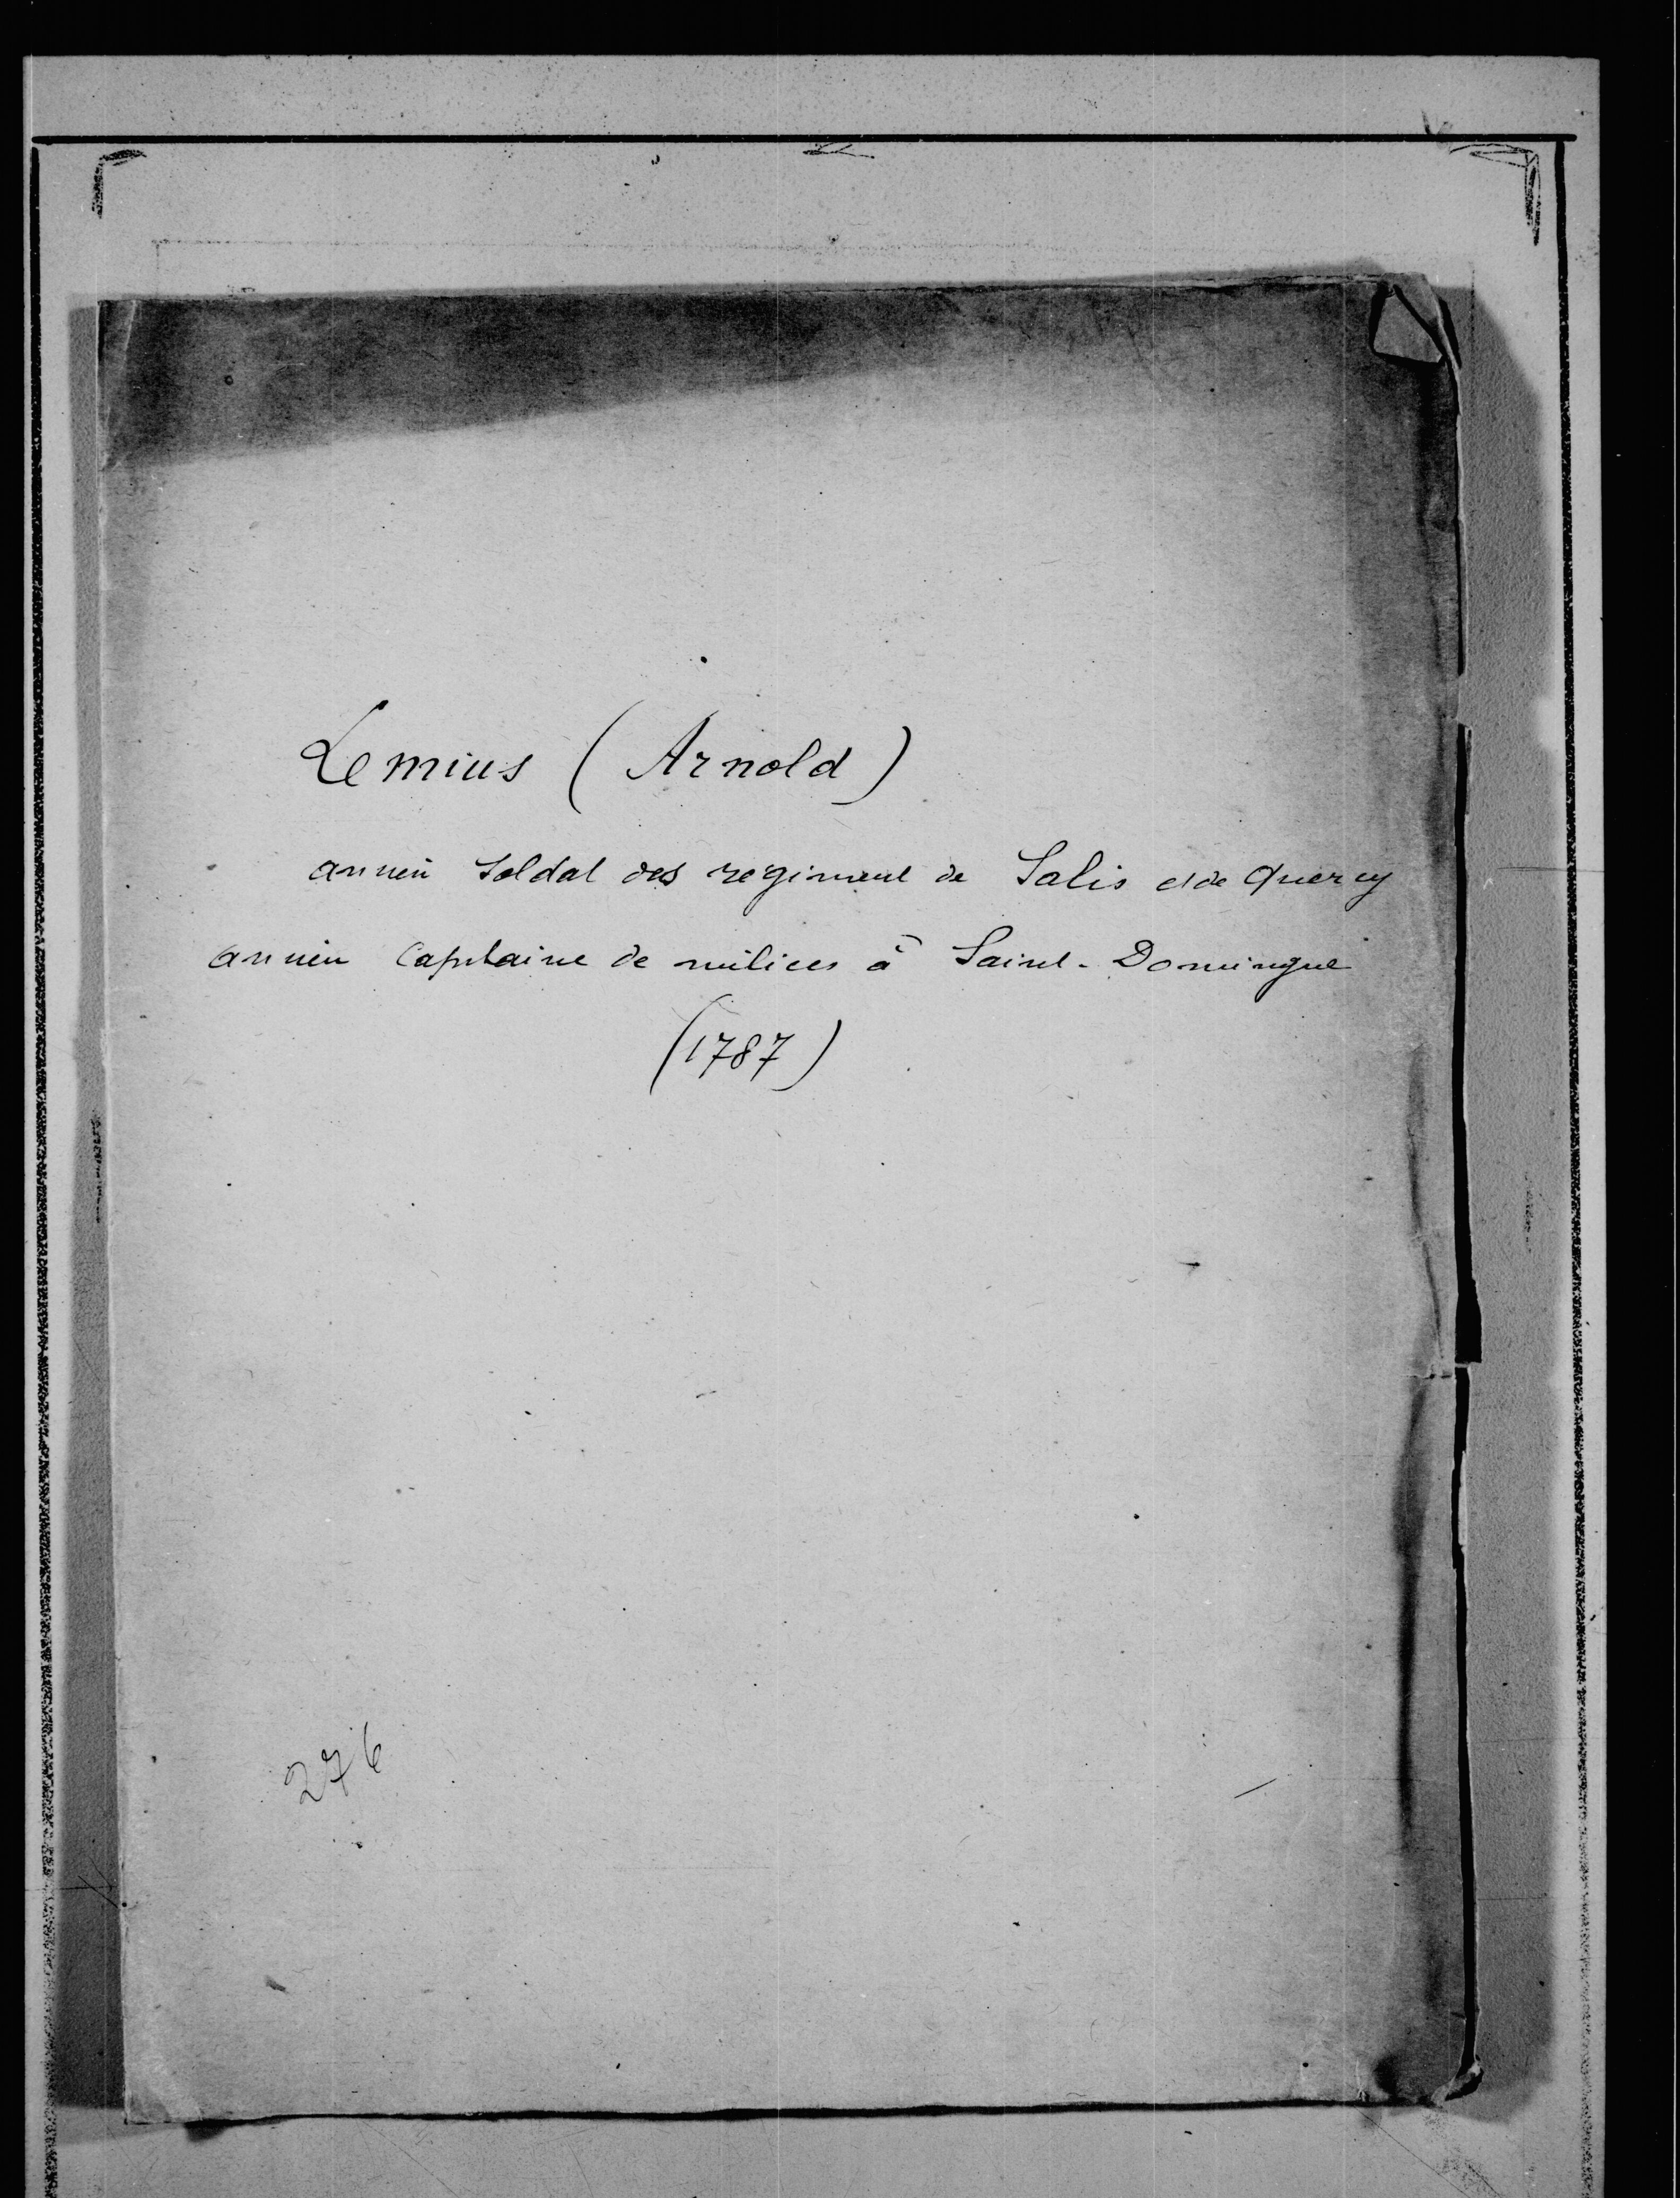 Lemius (Arnold)
ancien soldat des régiment de Salis et de Quercy
ancien Capitaine de milices à Saint-Domingue
(1787)
276